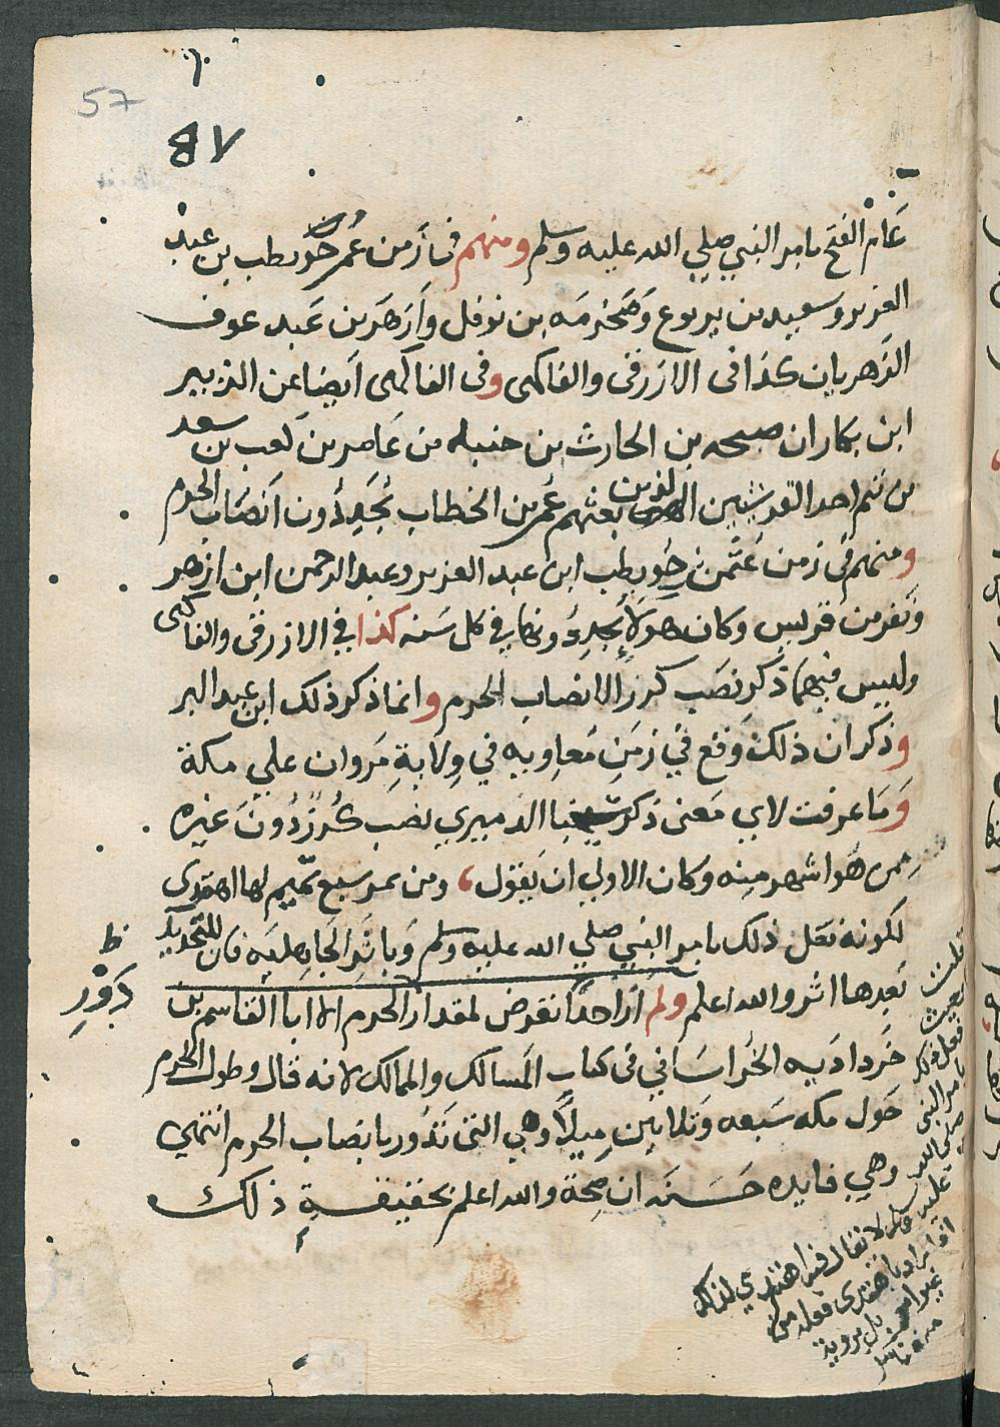 57
٨٧
عام الفتح بامر النبي صلي الله عليه وسلم ومنهم فى زمن عمر حويطب بن عبد
العزير وسعيد بن يربوع ومخرمه بن نوفل وازهر بن عبد عوف
الزهريان كذا فى الازرقى والفاكهى وفى الفاكهى ايضا عن الزبير
ابن بكار ان صبحه بن الحارث بن جبيله من عامر بن كعب بن سعد
بن تيم احد القرشيين الذين بعثهم عمر بن الخطاب يجددون انصاب الحرم
ومنهم فى زمن عثمن حويطب ابن عبد العزير وعبد الرحمن ابن ازهر
ونفر من قريس وكان هولا يجددونها في كل سنه كذا في الازرقى والفاكهى
وليس فيهما ذكر نصب كرز الانصاب الحرم وانما ذكر ذلك ابن عبد البر
وذكر ان ذلك وقع في زمن معاويه في ولاية مروان علي مكة
وما عرفت لاي معنى ذكر شيخنا الدميري نصب كرز دون غيره
ممن هو اشهر منه وكان الاولي ان يقول، ومن بعد سبع تميم لها اهتدى
لكونه فعل ذلك بامر النبي صلي الله عليه وسلم وباثر الجاهليه فان للتحديد
بعدها اثر والله اعلم ولم ار احدا تعرض لمقدار الحرم الا ابا القاسم بن
خرداديه الخراساني فى كتاب المسالك والممالك لانه قال وطول الحرم
حول مكه سبعه وثلاثين ميلا وهي التى تدور بانصاب الحرم انتهي
وهي فايده حسنه ان صحة والله اعلم بحقيقة ذلك
ظ
دور
قلت
بحيث
فعل ذلك
بامر النبى
صلى الله
عليه وسلم لا يقال فيه اهتدي لذلك
انما يراد باهتدى فعله من
غير امر بل بروية